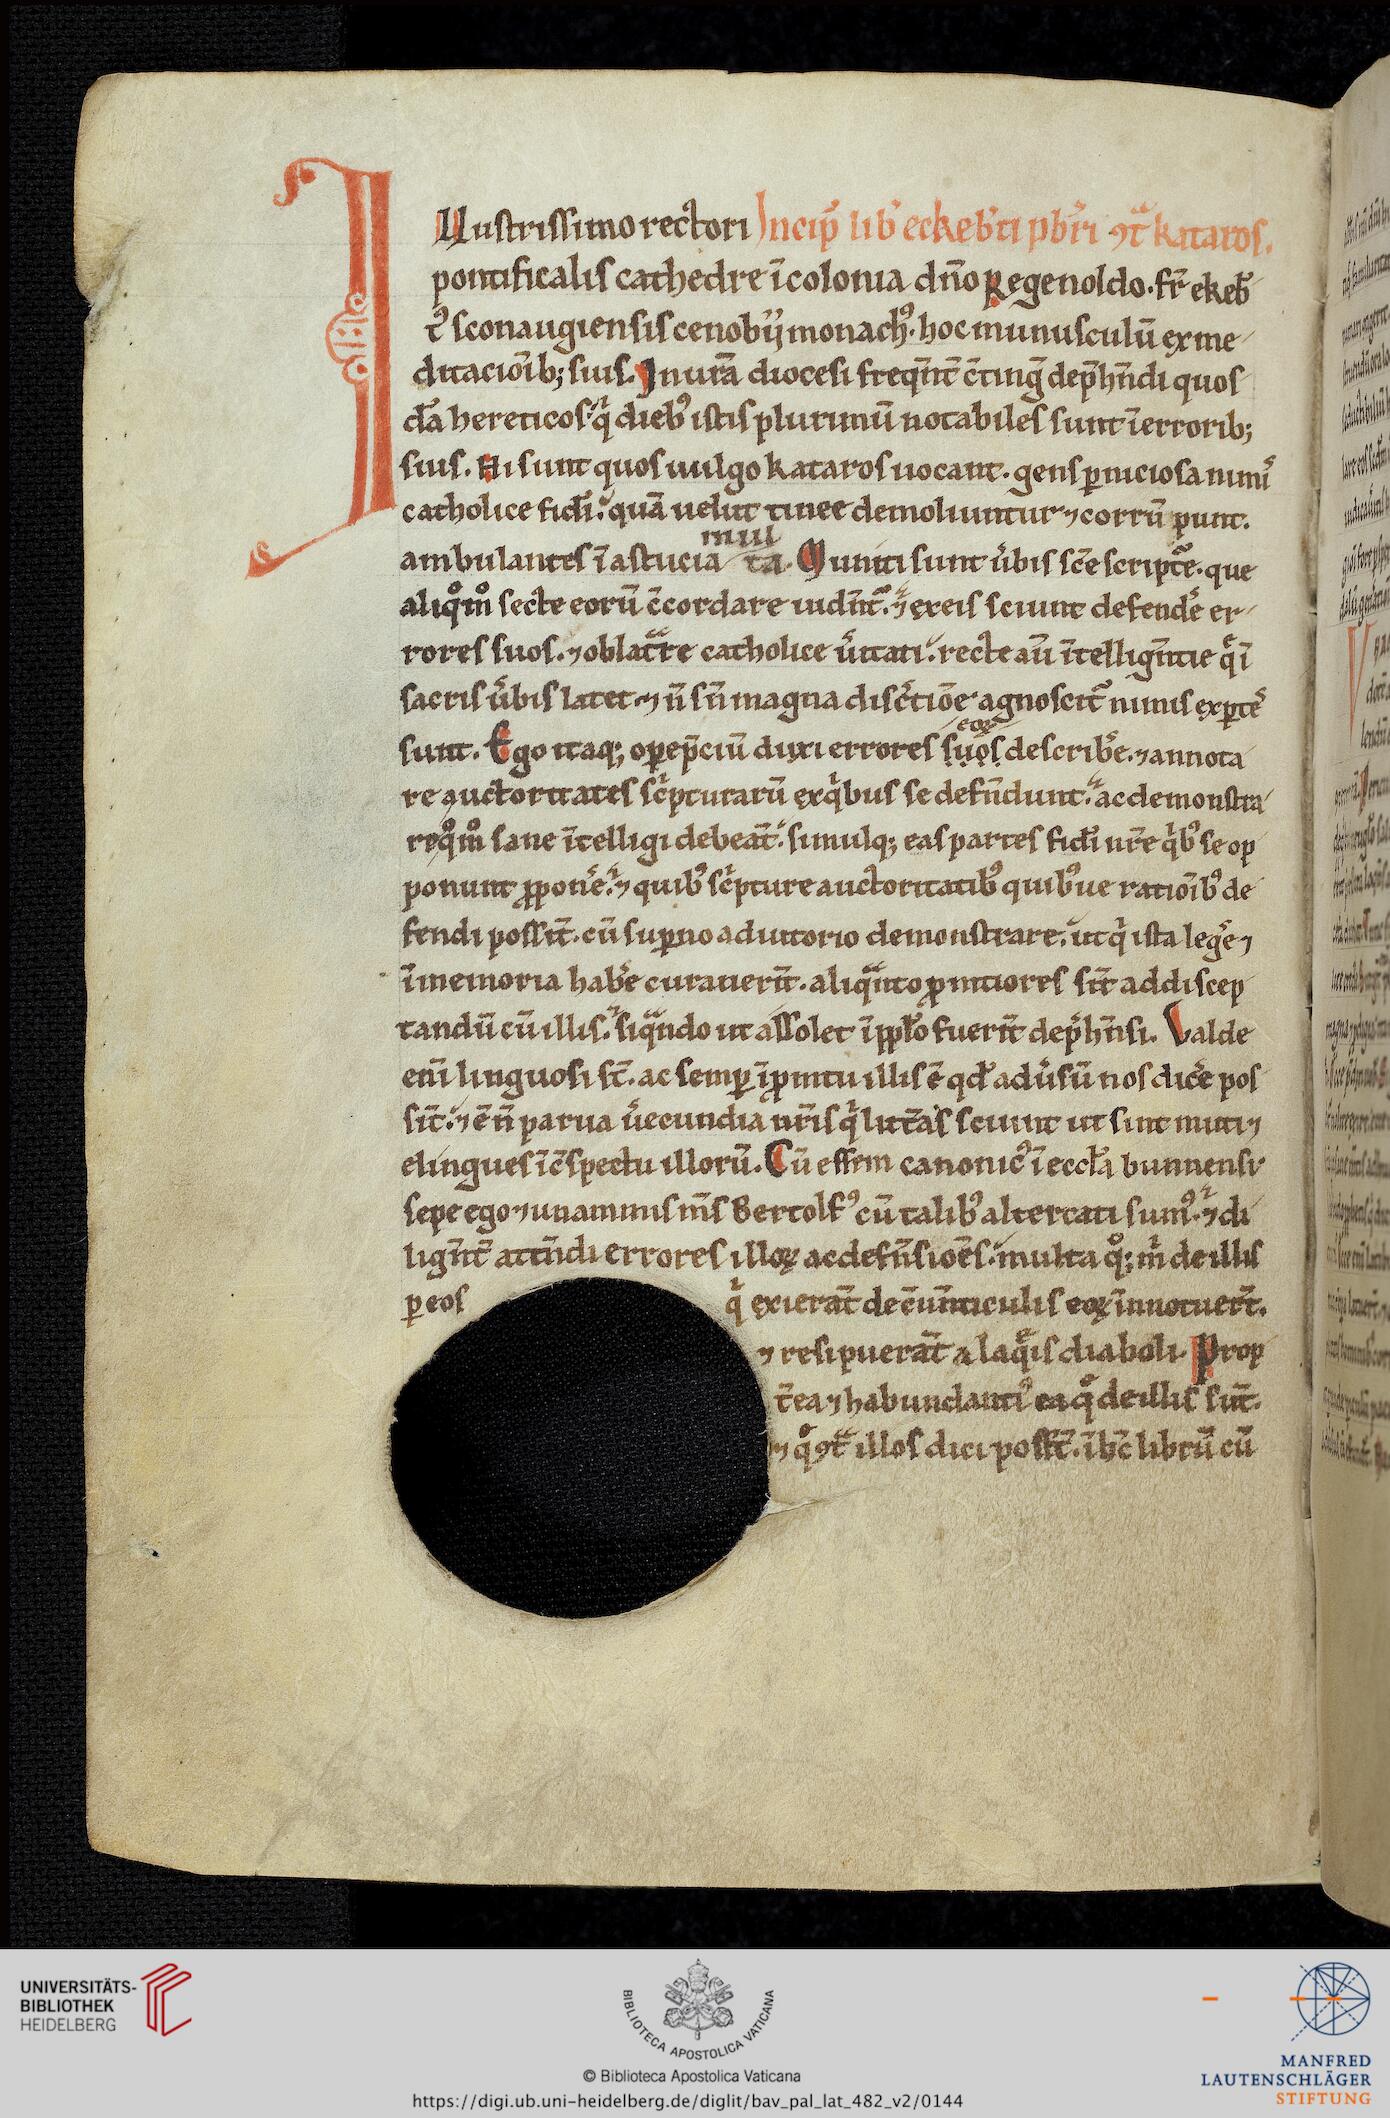 Illustrissimo rectori Incip̄ lib̄ eckeb̓ti pb̄ri ꝯt͛ kataros.
pontificalis cathedre ī colonia dn̄o Regenoldo. fr̄ ekeb̄
t᷒ sconaugiensis cenobij monach᷒. hoc munusculū ex me
ditacioīb; suis. In ur̄a diocesi freq̄nt̄ c̄tinḡ dep̄hn̄di quos
dā hereticos. q̇ dieb᷒ istis plurimū notabiles sunt ī errorib;
suis. Hi sunt quos uulgo kataros uocant. gens ꝑniciosa nimi᷒
catholice fidei. quā uelut tinee demoliuntur ⁊ corrūpunt.
ambulantes ī astucia mul
ta. Muniti sunt u̓bis sc̄e scripte̅. que
aliqͦmͦ secte eorū c̄cordare uidn̄t. ⁊ ex eis sciunt defende̓ er
rores suos. ⁊ oblatrͣe catholice u̓itati. recte aū īntelliḡntie q̄ ī
sacris u̓bis latet ⁊ n̄ sn̄ magna disc̓tiōe agnoscit᷒ nimis exꝑte᷒
sunt. Ego itaq; oꝑep̄ciū duxi errores suos eoꝝ describe̓. ⁊ annota
re auctoritates sc̓pturarū ex q̇bus se defn̄dunt. ac demonstra
re qͦmͦ sane ītelligi debeāt. simulq; eas partes fidei nr̄e q̇b᷒ se op
ponunt ꝓpone̓. ⁊ quib᷒ sc̓pture auctoritatib᷒ quib᷒ue ratioīb᷒ de
fendi possīt. cū suꝑno adiutorio demonstrare. ut q̇ ista lege̓ ⁊
ī memoria habe̓ curauerīt. aliqͣnto ꝓmtiores sīt ad discep
tandū cū illis. siqͣndo ut assolet ī pplo̓ fuerīt dep̄hn̄si. Valde
enī linguosi st̄. ac semꝑ ī ꝓmtu illis ē qd̓ adu̓sū nos dice̓ pos
sīt. ⁊ ē n̄ parua u̓ecundia nr̄is q̇ litt̄as sciunt ut sint muti ⁊
elingues ī c̄spectu illorū. Cū essem canonic᷒ ī eccl̄a bunnensi
sepe ego ⁊ unanimis m̄s Bertolf᷒ cū talib᷒ altercati sum᷒. ⁊ di
lign̄t̄ attn̄di errores illoꝝ ac defn̄sioēs. multa qͦ; m̓ de illis
ꝑ eos q̇ exierāt de c̄uenticulis eoꝝ īnotuert̄.
⁊ resipuerāt a laq̄is diaboli. Prop
t̄ea ⁊ habundanti᷒ ea q̄ de illis sūt.
⁊ q̄ ꝯt͛ illos dici possēt. ī hc̄ librū cū
UNIVERSITÄTS-
BIBLIOTHEK
HEIDELBERG
BIBLIOTECA APOSTOLICA VATICANA
© Biblioteca Apostolica Vaticana
https://digi.ub.uni-heidelberg.de/diglit/bav_pal_lat_482_v2/0144
MANFRED
LAUTENSCHLÄGER
STIFTUNG